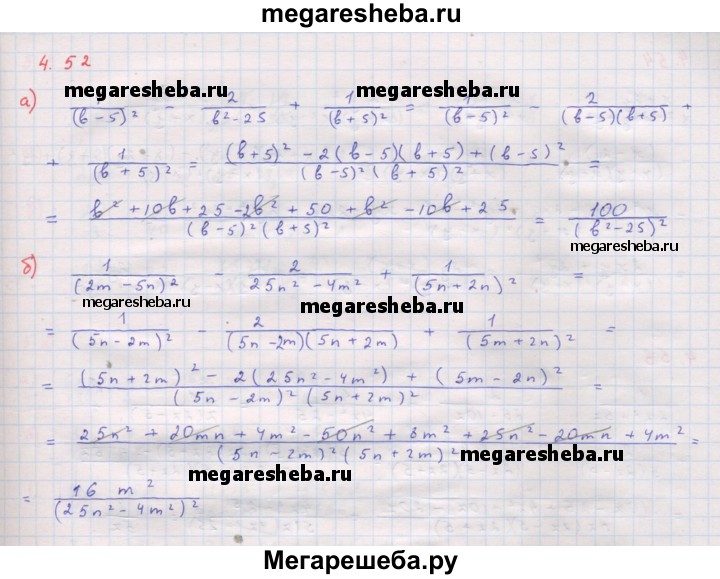 megaresheba.ru
4.52
а) 1/(b-5)² - 2/b²-25 + 1/(b+5)² = 1/(b-5)² - 2/(b-5)(b+5) +
megaresheba.ru megaresheba.ru
+ 1/(b+5)² = (b+5)² - 2(b-5)(b+5) + (b-5)²/(b-5)²(b+5)² =
= b² + 10b + 25 - 2b² + 50 + b² - 10b + 25/(b-5)²(b+5)² = 100/(b²-25)²
megaresheba.ru
б) 1/(2m-5n)² - 2/25n²-4m² + 1/(5n+2n)² =
megaresheba.ru megaresheba.ru
= 1/(5n-2m)² - 2/(5n-2m)(5n+2m) + 1/(5m+2n)² =
= (5n+2m)² - 2(25n²-4m²) + (5m-2n)²/(5n-2m)²(5n+2m)² =
= 25n² + 20mn + 4m² - 50n² + 8m² + 25n² - 20mn + 4m²/(5n-2m)²(5n+2m)² =
megaresheba.ru
= 16m²/(25n²-4m²)²
megaresheba.ru
Мегарешеба.ру